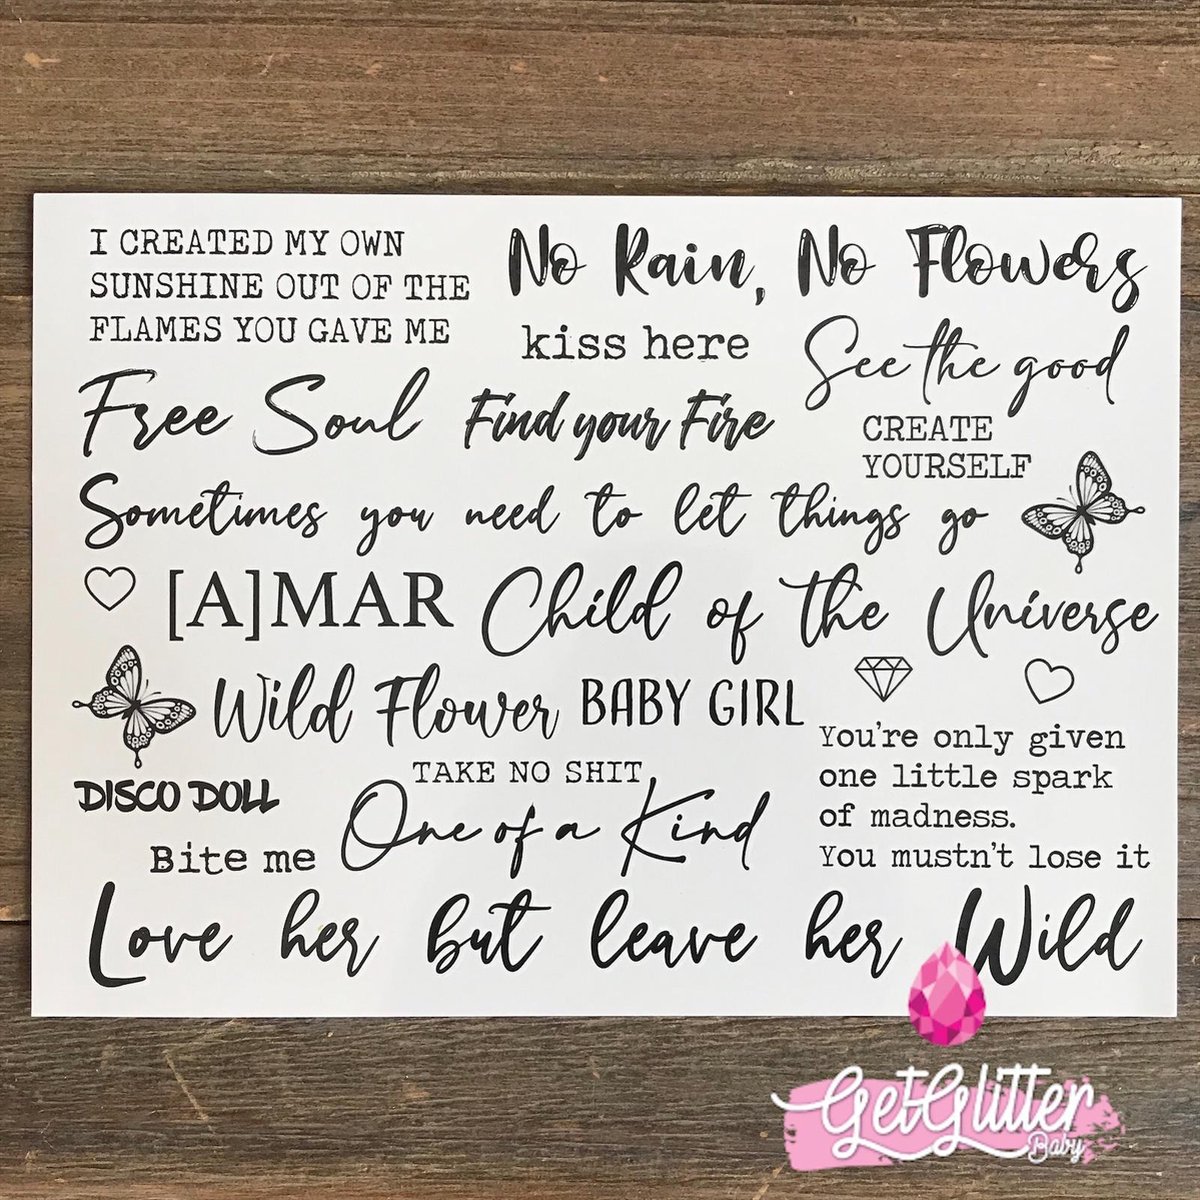 I CREATED MY OWN
SUNSHINE OUT OF THE
FLAMES YOU GAVE ME
No Rain, No Flowers
kiss here
See the good
Free Soul
Find your Fire
CREATE
YOURSELF
Sometimes you need to let things go
[A]MAR
Child of the Universe
Wild Flower
BABY GIRL
You're only given
one little spark
of madness.
You mustn't lose it
TAKE NO SHIT
DISCO DOLL
One of a Kind
Bite me
Love her but leave her Wild
GetGlitter
Baby